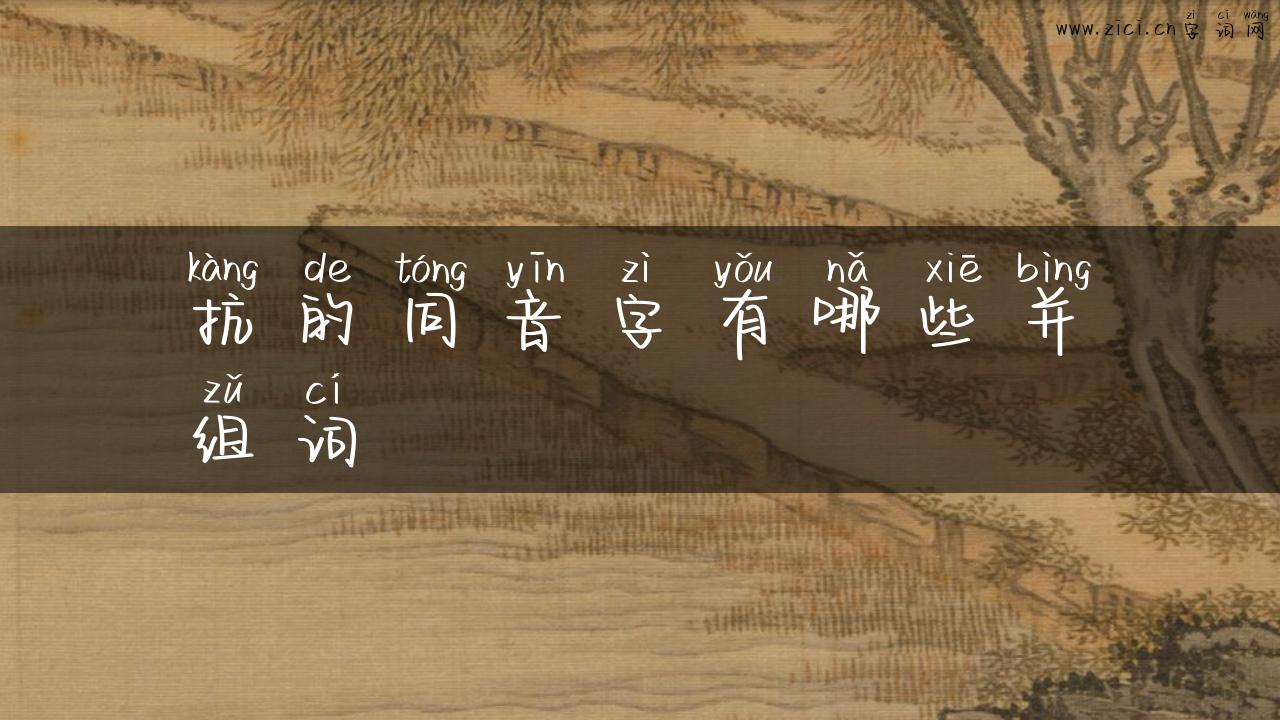 zì cí wǎng
www.zici.cn字词网
kàng de tóng yīn zì yǒu nǎ xiē bìng
抗的同音字有哪些并
zǔ cí
组词